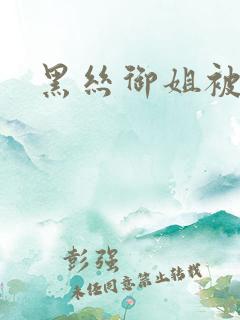 黑丝御姐被
彭强
未经同意禁止转载